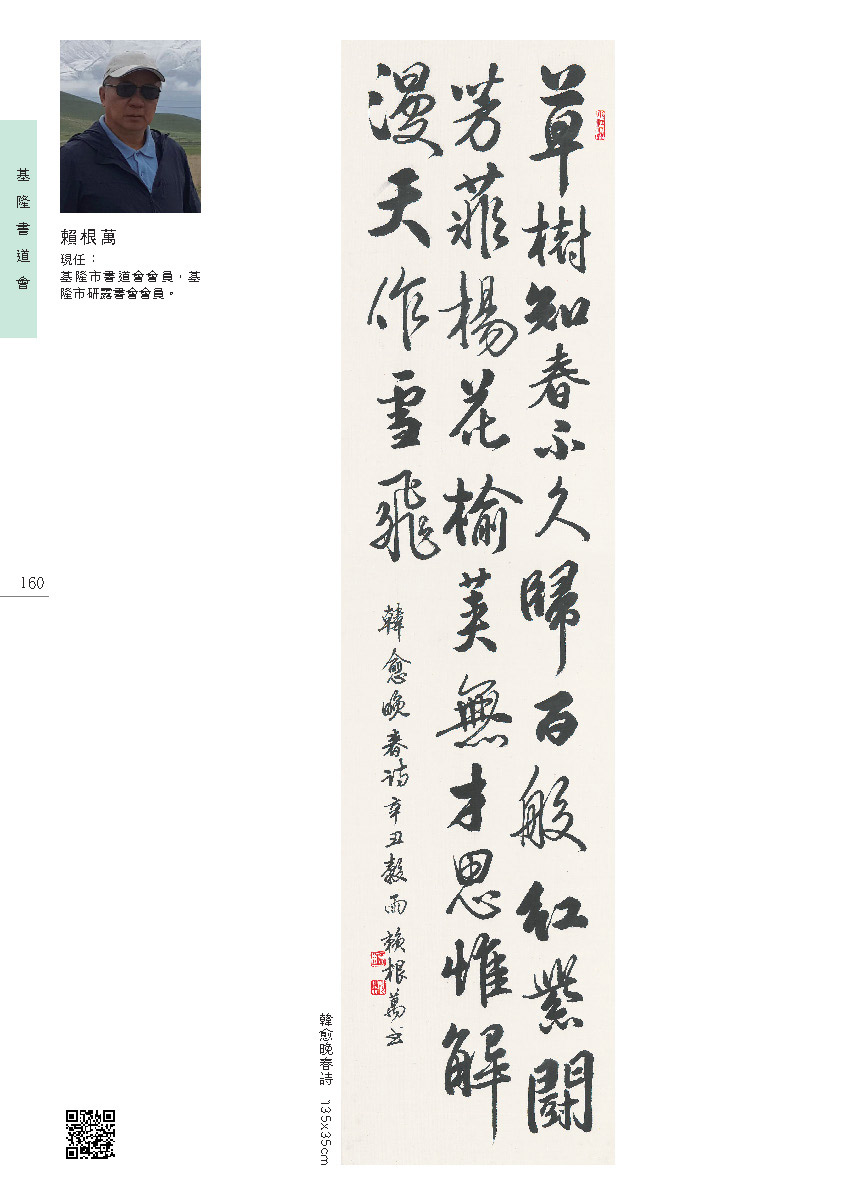 基隆書道會
賴根萬
現任：
基隆市書道會會員，基
隆市研露書會會員。
160
草樹知春不久歸百般紅紫鬪
芳菲楊花榆莢無才思惟解
漫天作雪飛
韓愈晚春詩辛丑穀雨賴根萬书
韓愈晚春詩 135x35cm